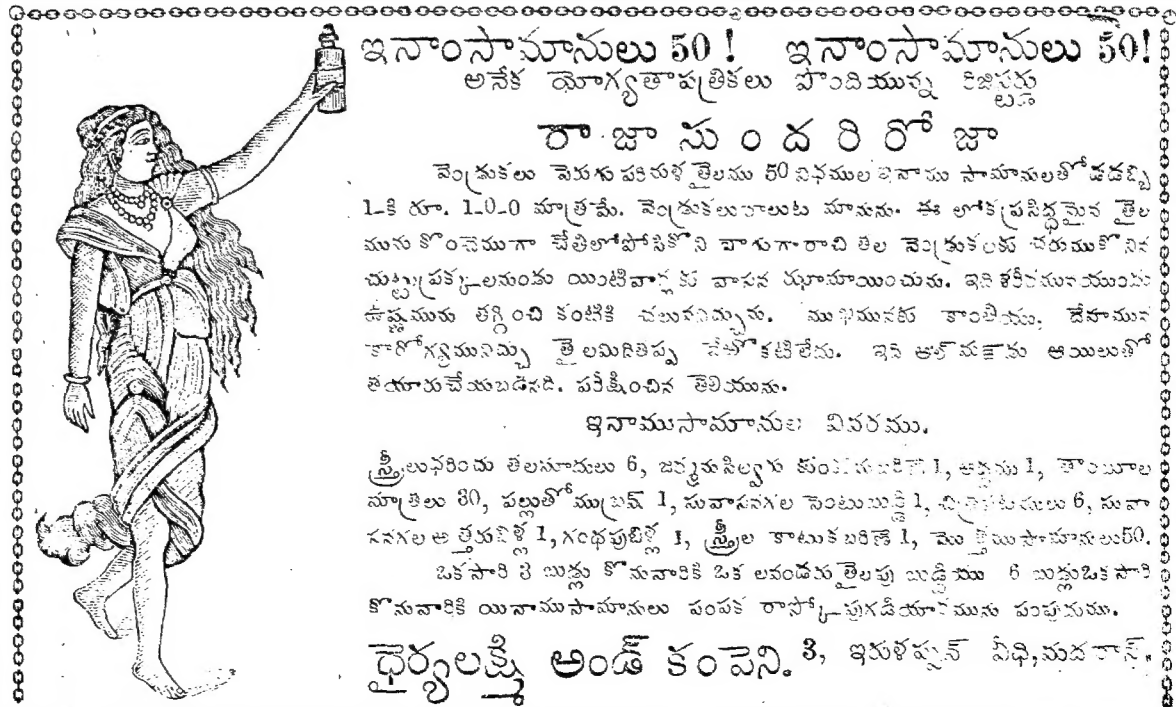 ఇనాంసామానులు 50! ఇనాంసామానులు 50!
అనేక యోగ్యతాపత్రికలు పొందియున్న రిజిస్టర్డు
రాజాసుందరిరోజా
వెండ్రుకలు పెరుగు పరిమళ తైలము 50 విధముల ఇనాము సామానులతోడడబ్బి
1-కి రూ. 1-0-0 మాత్రమే. వెండ్రుకలురాలుట మానును. ఈ లోకప్రసిద్ధమైన తైల
మును కొంచెముగా చేతిలోపోసికొని బాగుగా రాచి తల వెండ్రుకలకు చరుముకొనిన
చుట్టుప్రక్కలనుండు యింటివాళ్లకు వాసన ఝామాయించును. ఇది శరీరమునయుండు
ఉష్ణమును తగ్గించి కంటికి చలువనిచ్చును. ముఖమునకు కాంతియు, దేహమున
కారోగ్యమునిచ్చు తైలమిదితప్ప వేఱొకటిలేదు. ఇది ఆయిలుతో
తయారుచేయబడినది. పరీక్షించిన తెలియును.
ఇనాముసామానుల వివరము.
స్త్రీలుధరించు తలసూదులు 6, జర్మనుసిల్వరు కుంకుమబరిణె 1, అద్దము 1, తాంబూల
మాత్రలు 30, పల్లుతోముబ్రష్ 1, సువాసనగల సెంటుబుడ్డి 1, చిత్రపటములు 6, సువా
సనగల అత్తరుబిళ్ల 1, గంధపుబిళ్ల 1, స్త్రీల కాటుక బరిణె 1, మొత్తముసామానులు 50.
ఒకసారి 3 బుడ్లు కొనువారికి ఒక లవండరు తైలపు బుడ్డియు 6 బుడ్లుఒకసారి
కొనువారికి యినాముసామానులు పంపక రాస్కోపుగడియారమును పంపుదుము.
ధైర్యలక్ష్మి అండ్ కంపెని. 3, ఇరుళప్పన్ వీధి, మదరాస్.